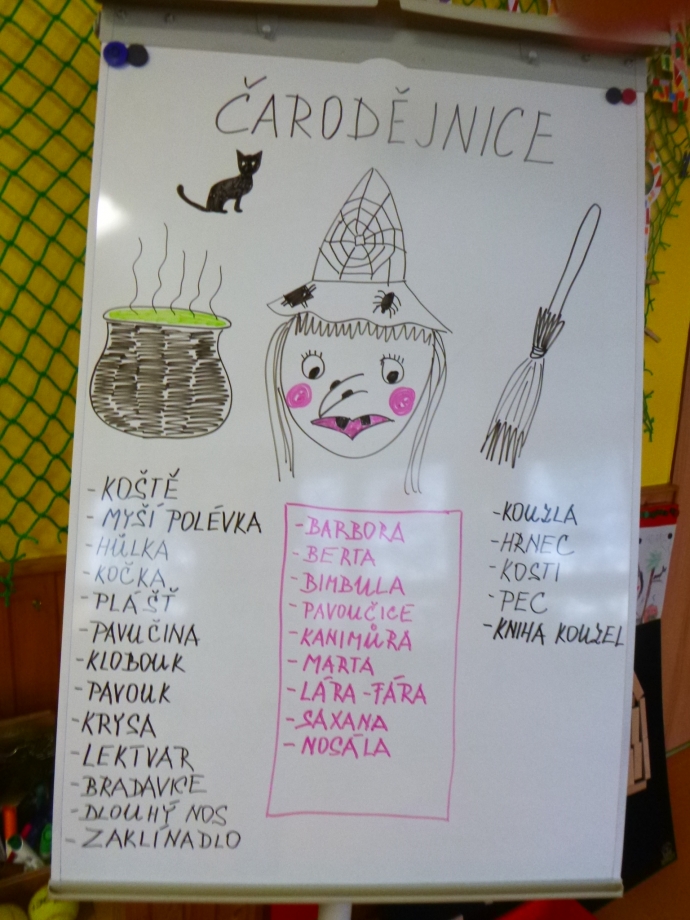 ČARODĚJNICE
- KOŠTĚ
- MYŠÍ POLÉVKA
- HŮLKA
- KOČKA
- PLÁŠŤ
- PAVUČINA
- KLOBOUK
- PAVOUK
- KRYSA
- LEKTVAR
- BRADAVICE
- DLOUHÝ NOS
- ZAKLÍNADLO
- BARBORA
- BERTA
- BIMBULA
- PAVOUČICE
- KANIMŮRA
- MARTA
- LÁRA-FÁRA
- SAXANA
- NOSÁLA
- KOUZLA
- HRNEC
- KOSTI
- PEC
- KNIHA KOUZEL